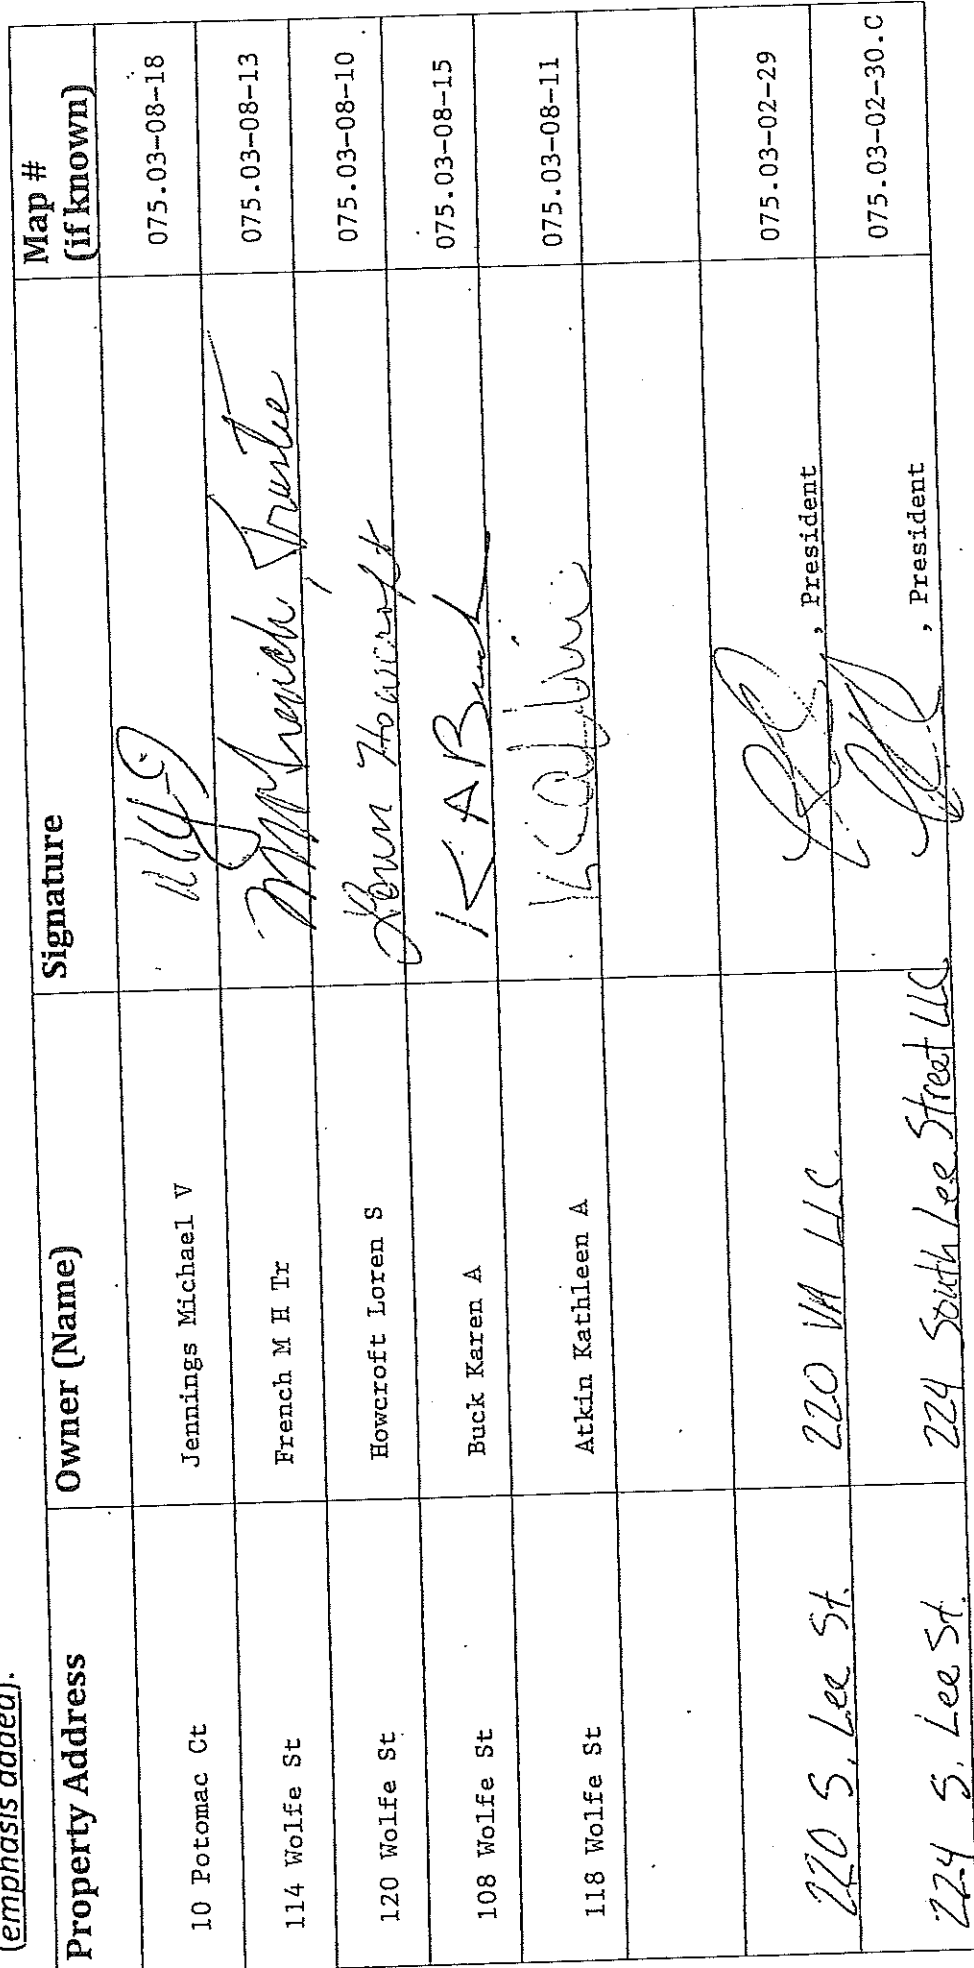 (emphasis added).
Property Address Owner (Name) Signature Map #
(if known)
10 Potomac Ct Jennings Michael V 075.03-08-18
114 Wolfe St French M H Tr MH French, Trustee 075.03-08-13
120 Wolfe St Howcroft Loren S Loren Howcroft 075.03-08-10
108 Wolfe St Buck Karen A K A Buck 075.03-08-15
118 Wolfe St Atkin Kathleen A K Atkin 075.03-08-11
220 S. Lee St. 220 VA LLC. , President 075.03-02-29
224 S. Lee St. 224 South Lee Street LLC , President 075.03-02-30.C